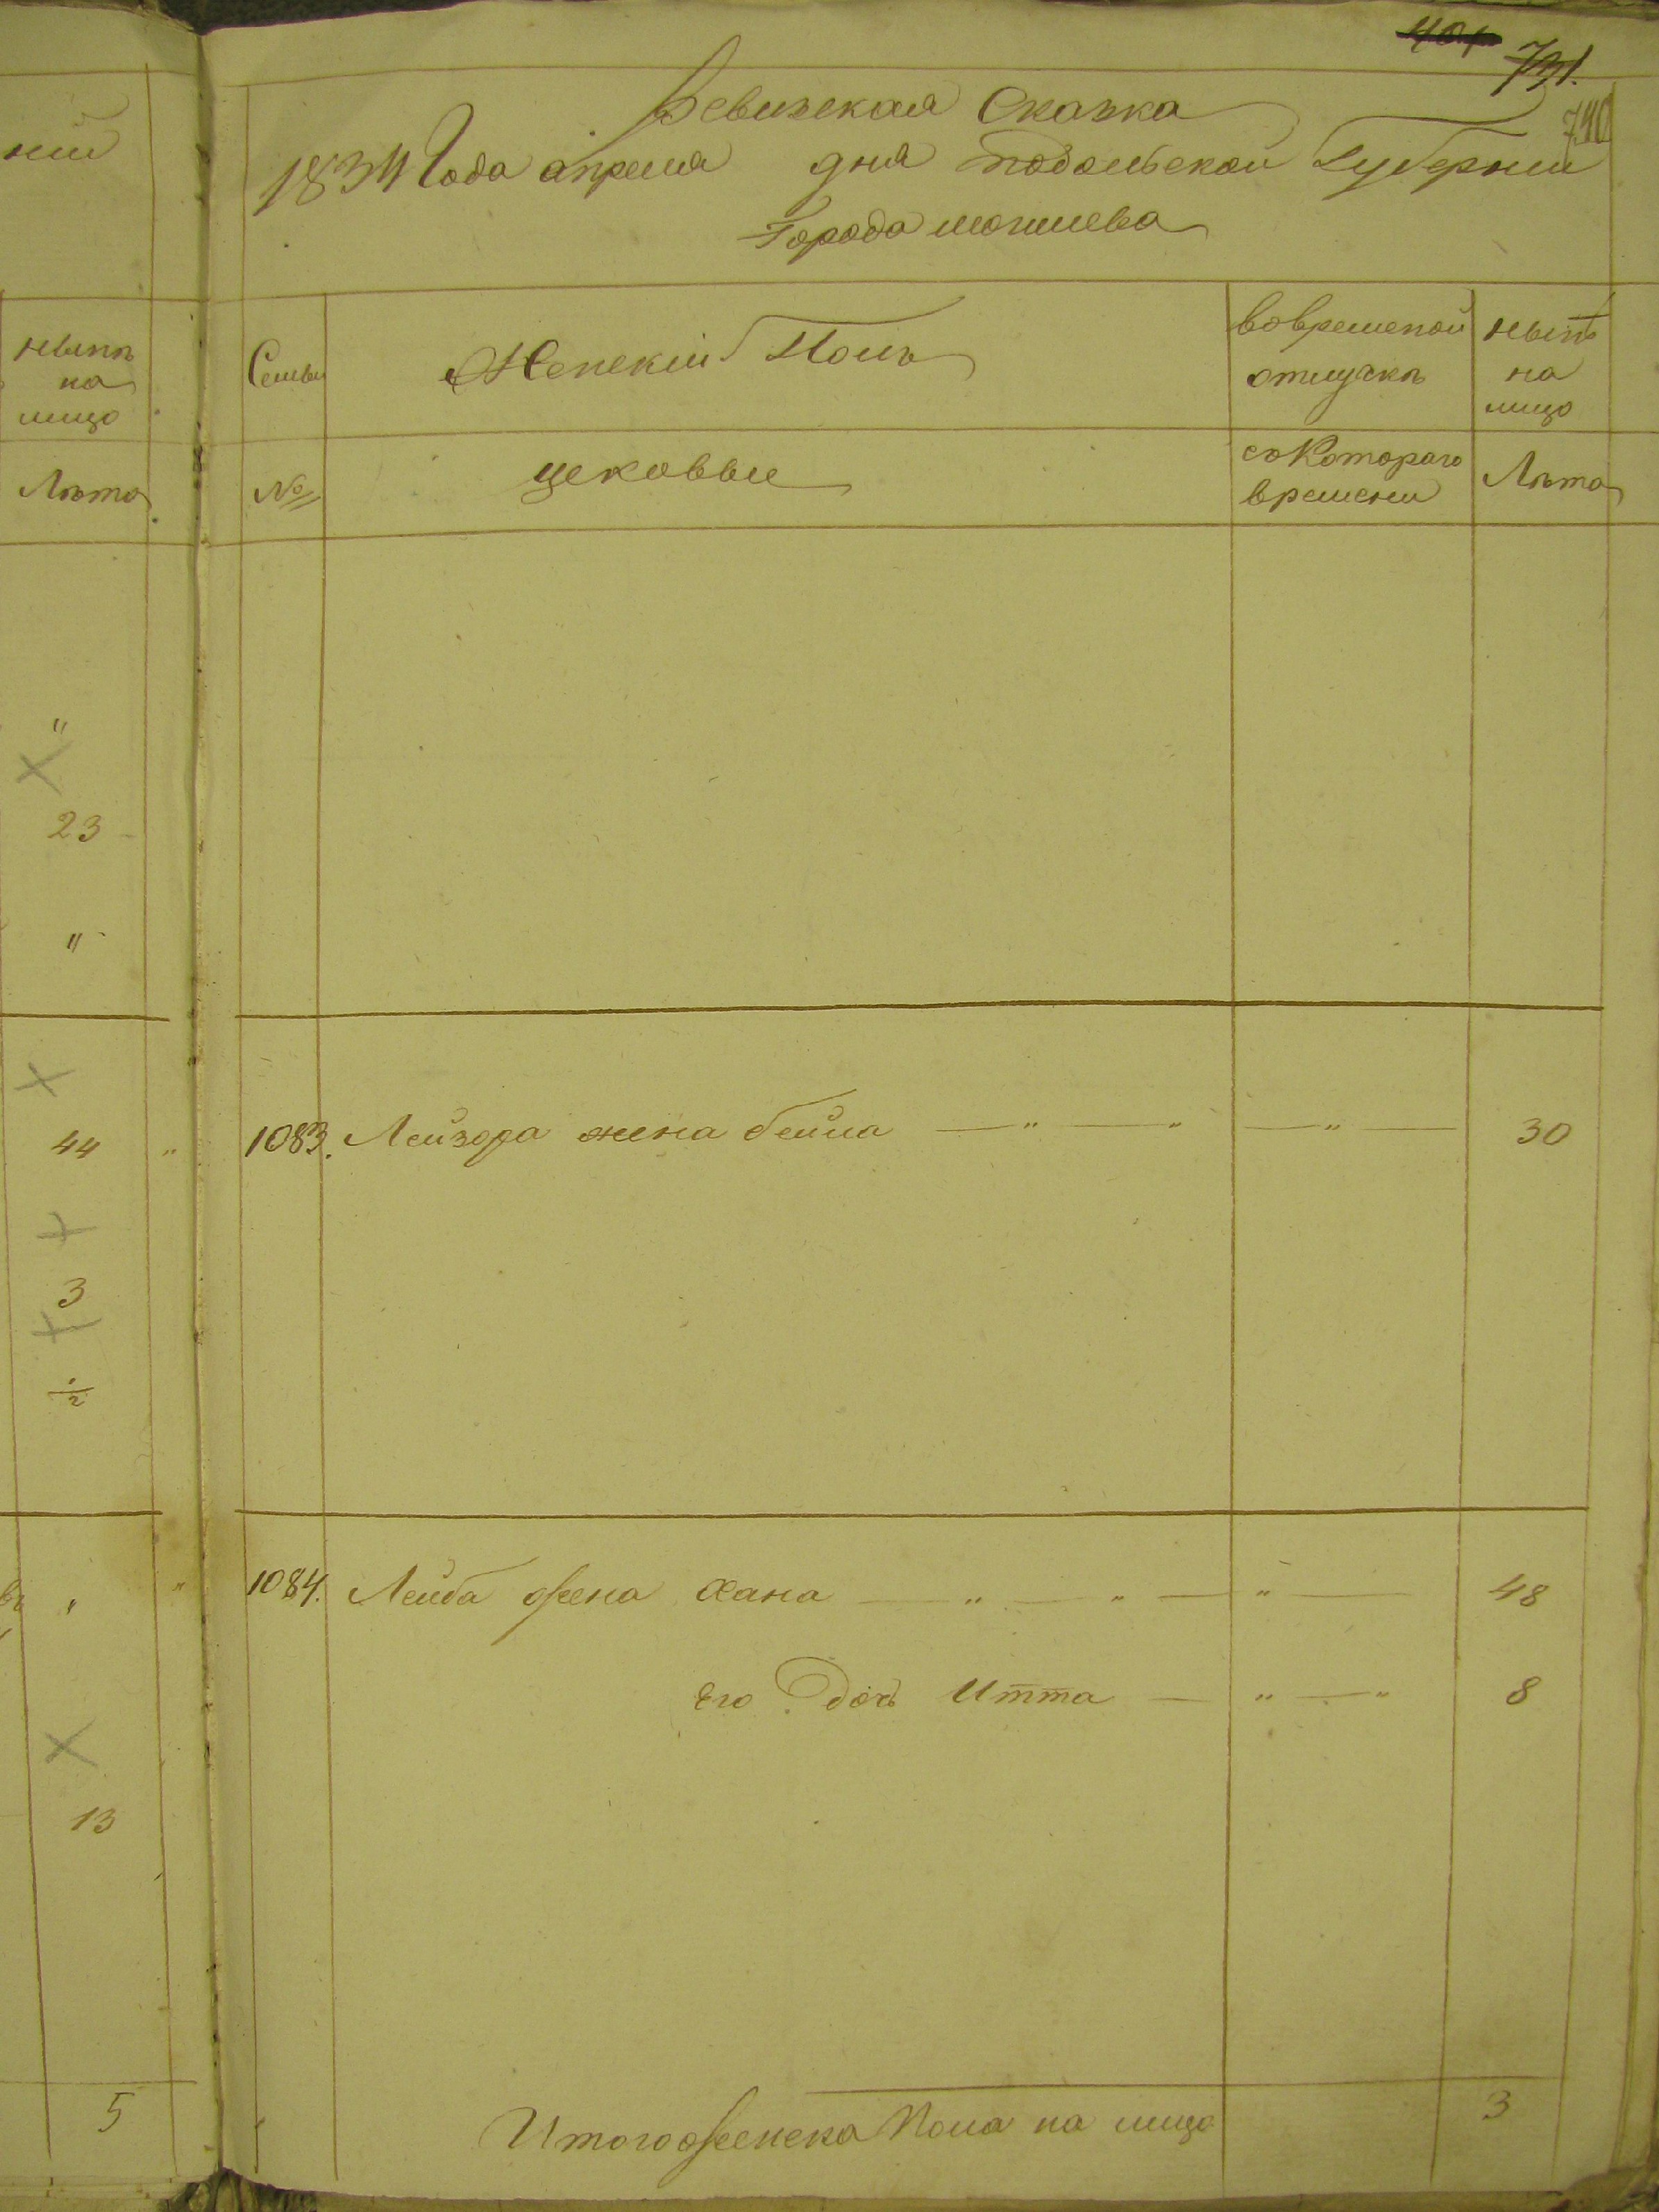 401 731.
740
Ревизская Сказка
1834 Года апреля дня Подольской Губернии
Города могилева
ний
нынѣ на лицо
Лѣта
Семьи
Женский Полъ
вовременой отлучкѣ
нынѣ на лицо
№
цеховые
скотораго времени
Лѣта
"
23
"
44 "
1083. Лейзора жена бейла — " — " — " — 30
3
1/2
" "
1084. Лейба жена Хана — " — " — " — 48
Его дочь Итта — " — " 8
13
5
Итого женска Пола на лицо 3